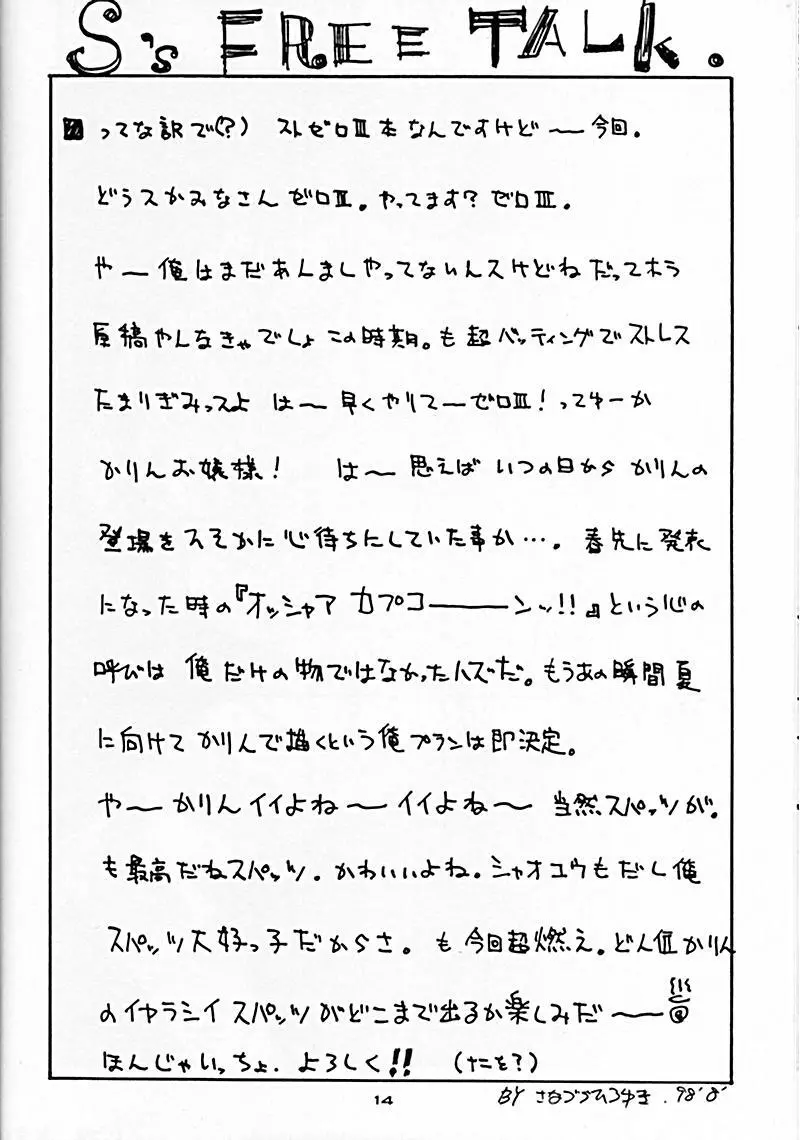 S's FREE TALK.
ってな訳で(?) ストゼロⅢ本なんですけど〜今回。
どうスかみなさんゼロⅢ。やってます?ゼロⅢ。
や〜俺はまだあんましやってないんスけどねだってホラ
原稿やんなきゃでしょこの時期。も超バッティングでストレス
たまりぎみっスよ は〜早くやりてーゼロⅢ!ってゆーか
かりんお嬢様! は〜思えばいつの日からかりんの
登場をヒそかに心待ちにしていた事か…。春先に発表
になった時の『オッシャア カプコ―――ンッ!!』という心の
呼びは 俺だけの物ではなかったハズだ。もうあの瞬間夏
に向けてかりんで描くという俺プランは即決定。
や〜かりんイイよね〜イイよね〜 当然スパッツが。
も最高だねスパッツ。かわいいよね。シャオユウもだし俺
スパッツ大好っ子だからさ。も今回超燃え。どん位かりん
のイヤラシイスパッツがどこまで出るか楽しみだ〜
ほんじゃいっちょ.よろしく!! (ナニを?)
14
BY さなづらひろゆき.'98'8'